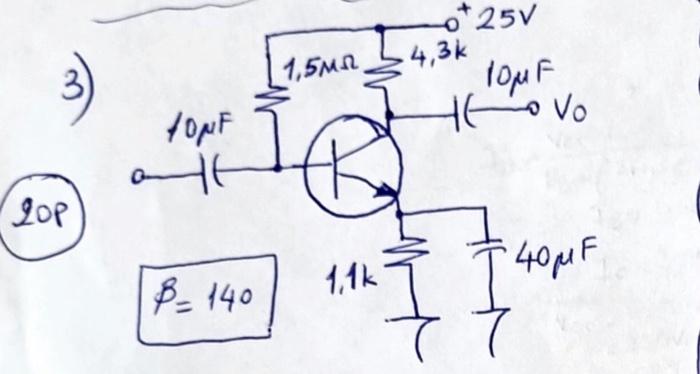 3)
+ 25V
1,5MΩ
4,3k
10μF
Vo
10μF
20P
1,1k
40μF
β = 140